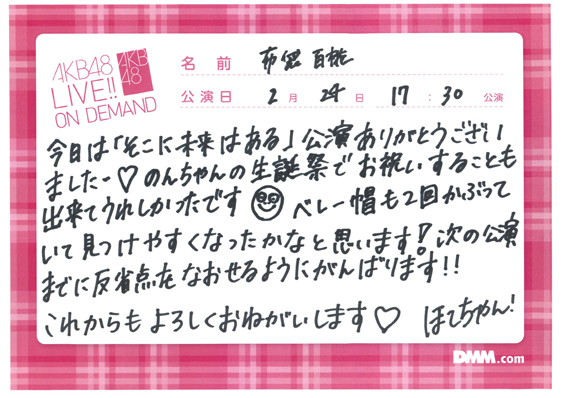 AKB48
LIVE!!
ON DEMAND
AKB
48
名前 布袋 百椛
公演日 2月 24日 17:30 公演
今日は「そこに未来はある」公演ありがとうござい
ましたー♡のんちゃんの生誕祭でお祝いすることも
出来てうれしかったです ベレー帽も2回かぶって
いて見つけやすくなったかなと思います!次の公演
までに反省点をなおせるようにがんばります!!
これからもよろしくおねがいします♡ ほてちゃん!
DMM.com